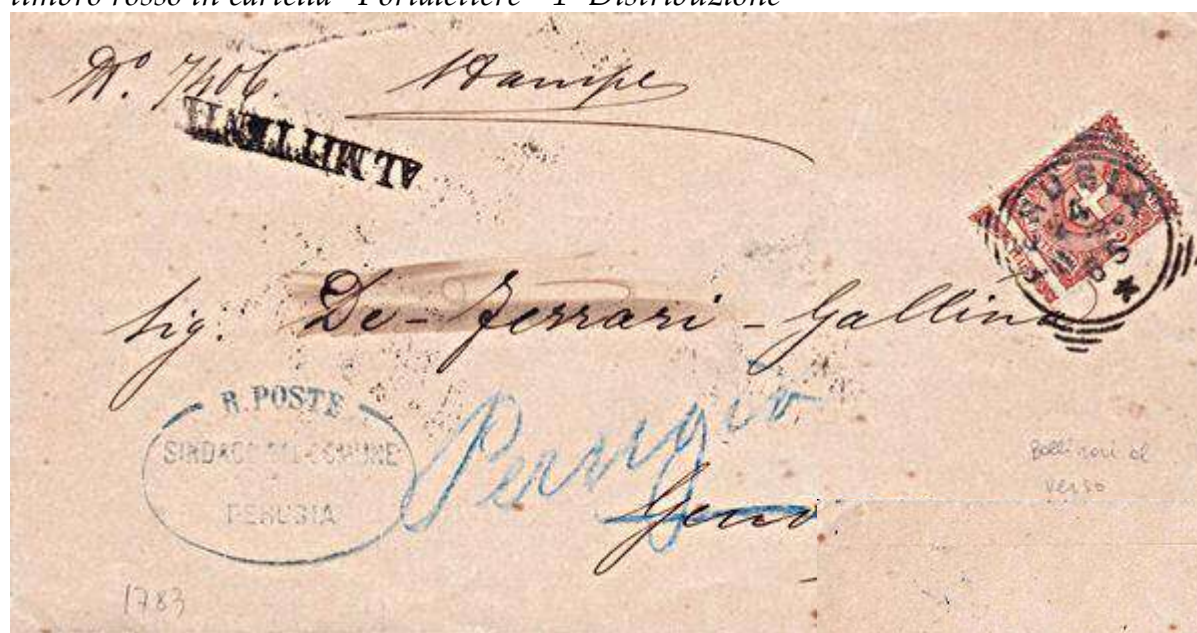 timbro rosso in cartella "Portalettere - 1ª Distribuzione"
Nº. 7406. Stampe
AL MITTENTE
Sig. De-Ferrari-Gallina
R. POSTE
SINDACO DEL COMUNE
PERUGIA
Perugia
Geno
Bolli vari al
verso
1783